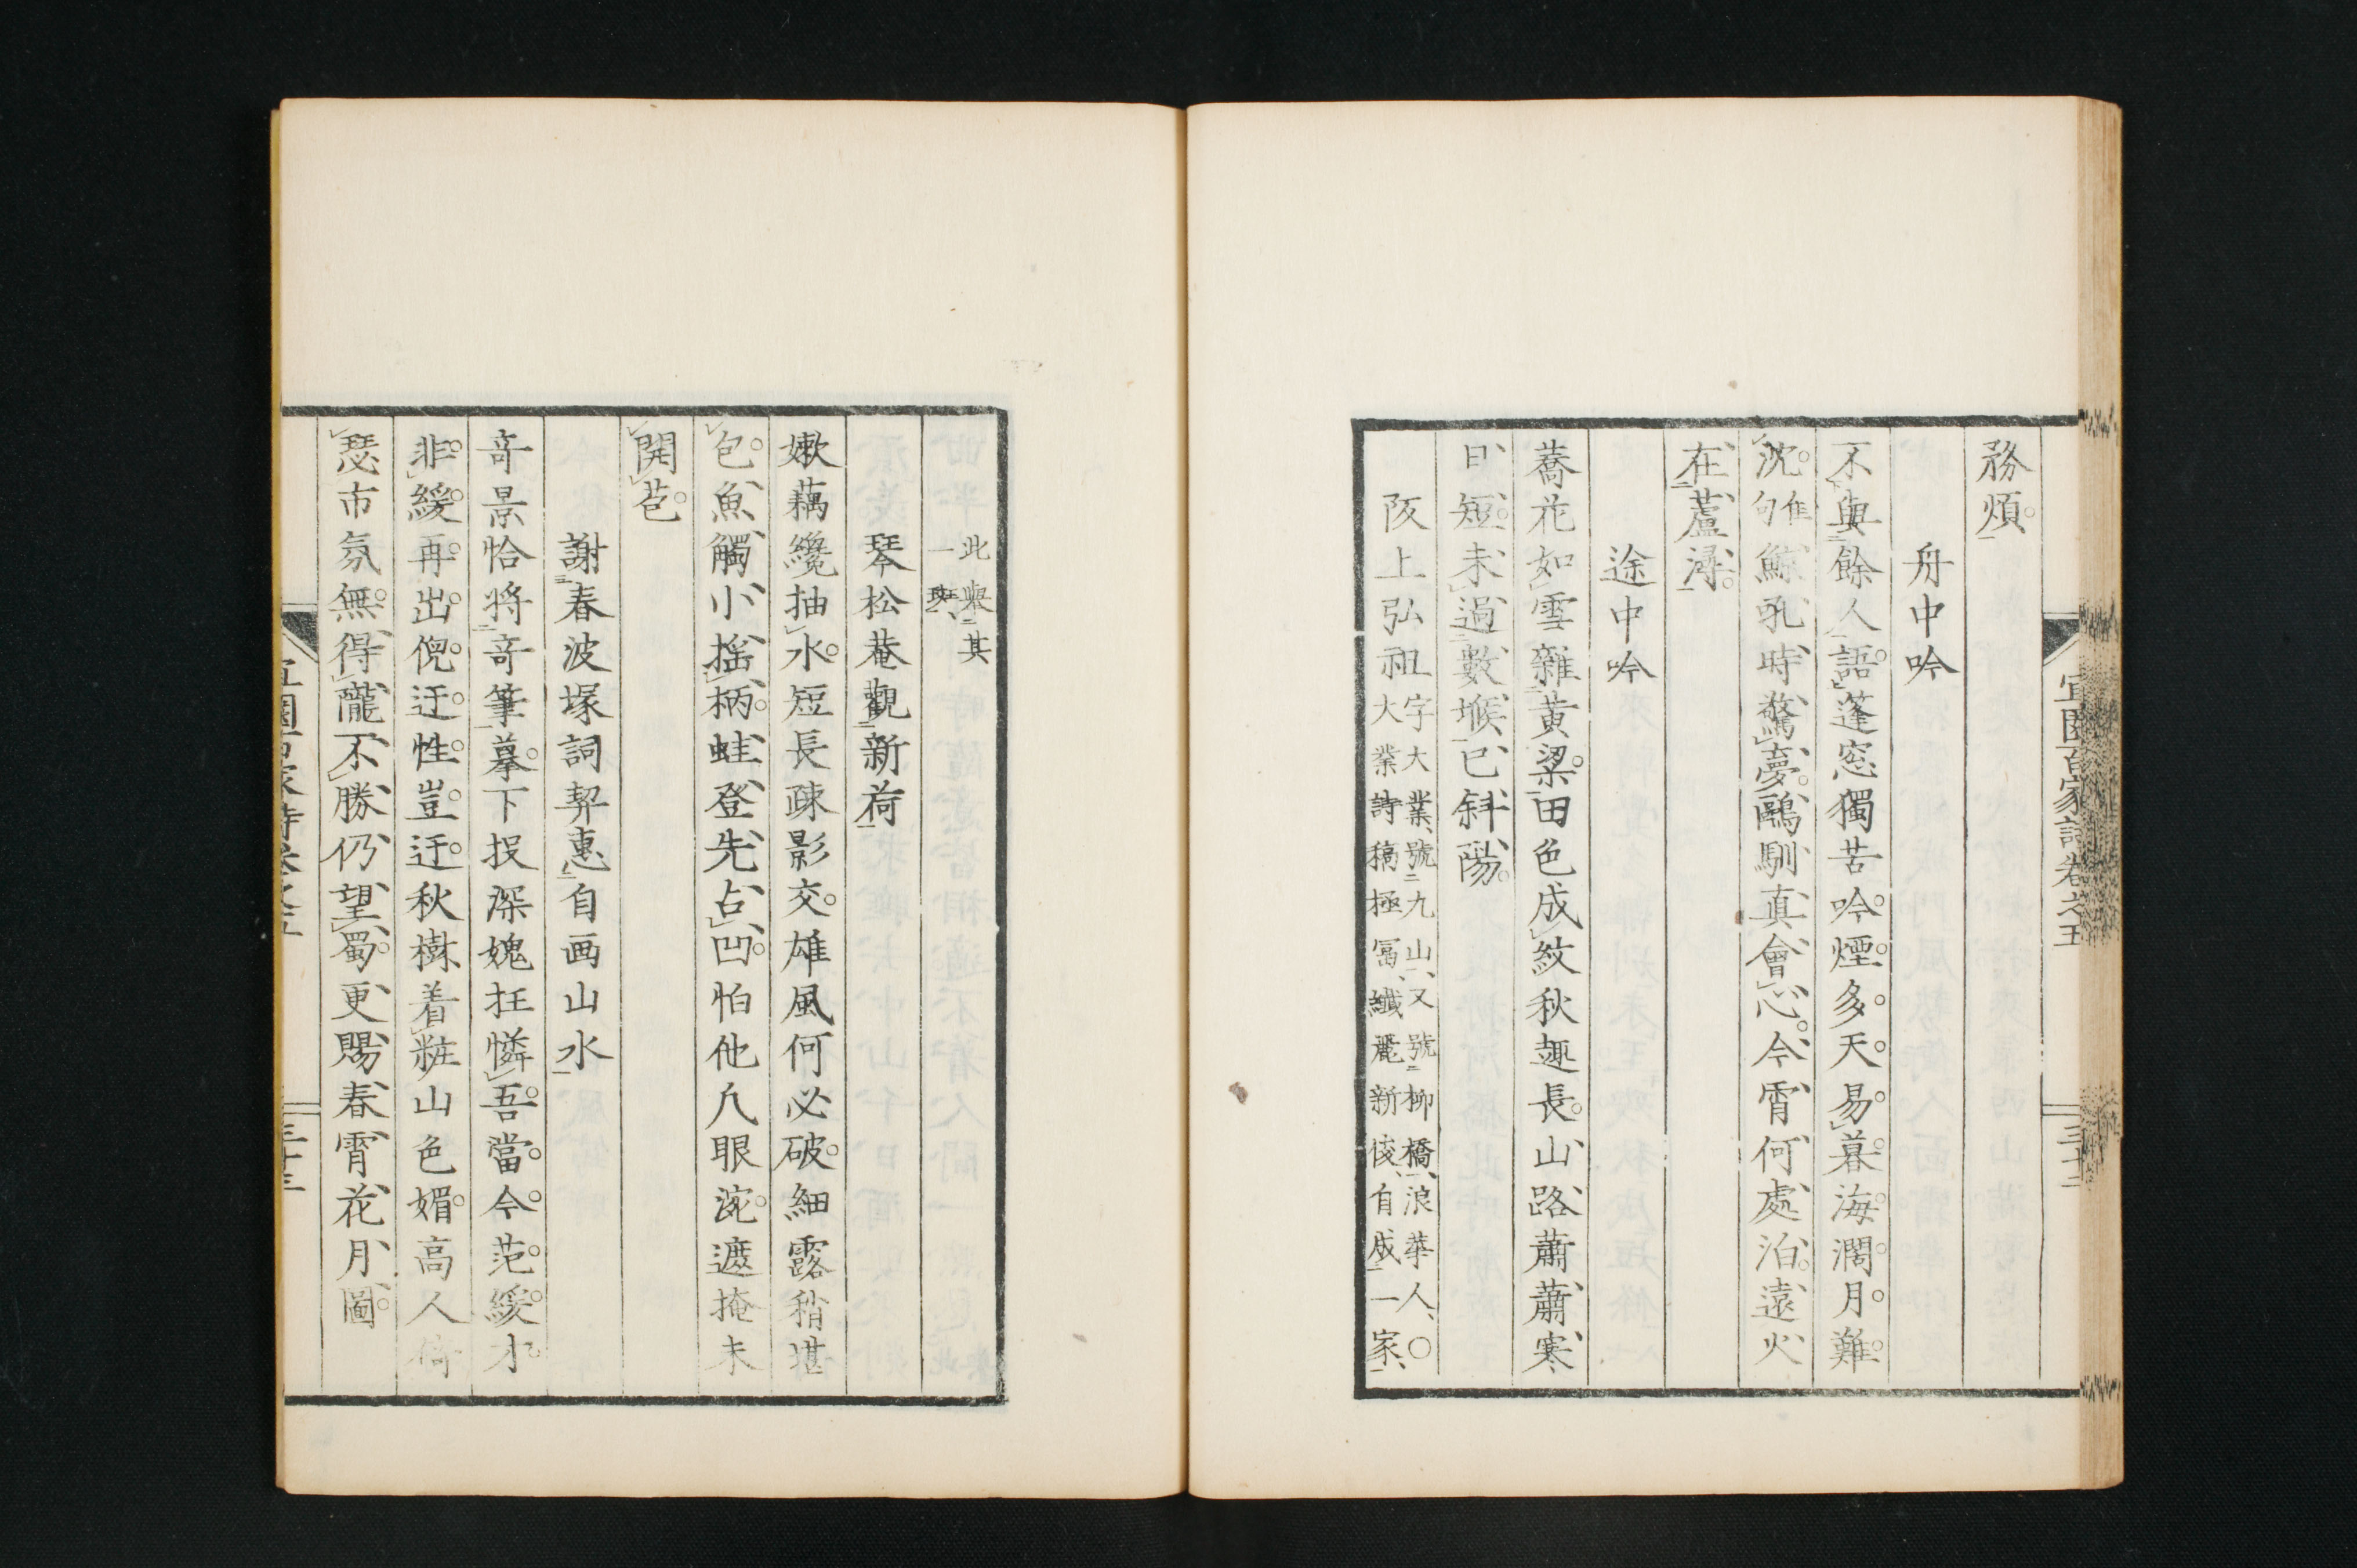 宜園百家詩卷之五
三十二
務煩。
舟中吟
不與餘人語。蓬窓獨苦吟。煙多天易暮。海濶月難
沈。雊句鯨吼時驚夢。鷗馴真會心。今宵何處泊。遠火
在蘆潯。
途中吟
蕎花如雪雜黄粱。田色成紋秋趣長。山路蕭蕭寒
日短。未過數堠已斜陽。
阪上弘祖字大業、號九山、又號柳橋、浪華人、〇
大業詩稿極冨、纎麗新倰、自成一家、
此擧其
一班、
琴松菴觀新荷
嫰藕纔抽水。短長疎影交。雄風何必破。細露稍堪
包。魚觸小搖柄。蛙登先占凹。怕他凡眼涴。遮掩未
開苞。
謝春波塚詞契惠自画山水
竒景恰將竒筆摹。下投深媿狂憐吾。當今范緩才
非緩。再出倪迂性豈迂。秋樹着粧山色媚。高人倚
瑟市氛無。得隴不勝仍望蜀。更賜春宵花月圖。
宜園百家詩卷之五
三十三